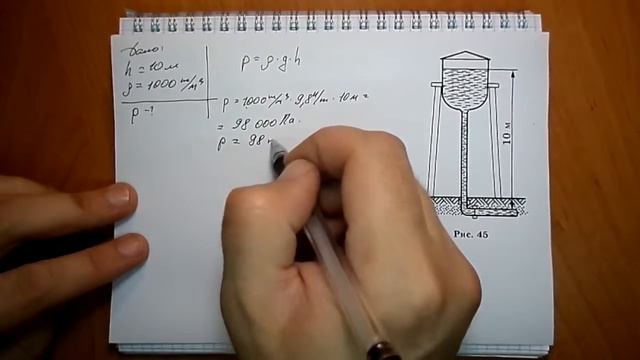 Дано:
h = 10 м
ρ = 1000 кг/м³
p - ?
p = ρ · g · h
p = 1000 кг/м³ · 9,8 Н/кг · 10 м =
= 98 000 Па.
p = 98 к
10 м
Рис. 45